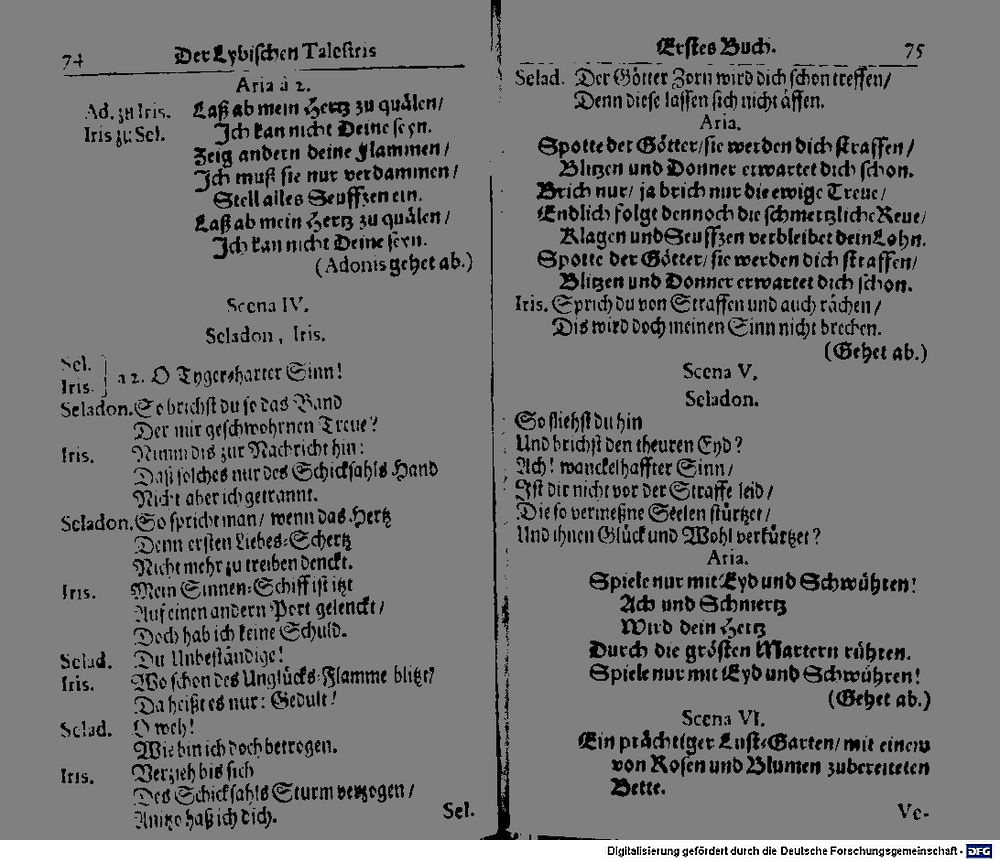 74 Der Lybischen Talestris
Aria à 2.
Ad. zu Iris. Laß ab mein Hertz zu quälen/
Iris zu Sel. Ich kan nicht Deine seyn.
Zeig andern deine Flammen/
Ich muß sie nur verdammen/
Stell alles Seuffzen ein.
Laß ab mein Hertz zu quälen/
Ich kan nicht Deine seyn.
(Adonis gehet ab.)
Scena IV.
Seladon, Iris.
Sel.
Iris. } à 2. O Tygers-harter Sinn!
Seladon. So brichst du so das Band
Der mir geschwohrnen Treue?
Iris. Nimm dis zur Nachricht hin:
Daß solches nur des Schicksahls Hand
Nicht aber ich getrannt.
Seladon. So spricht man/ wenn das Hertz
Denn ersten Liebes-Schertz
Nicht mehr zu treiben denckt.
Iris. Mein Sinnen-Schiff ist itzt
Auf einen andern Port gelenckt/
Doch hab ich keine Schuld.
Selad. Du Unbeständige!
Iris. Wo schon des Unglücks-Flamme blitzt?
Da heißt es nur: Gedult!
Selad. O weh!
Wie bin ich doch betrogen.
Iris. Verzieh bis sich
Des Schicksahls Sturm verzogen/
Anitzo haß ich dich.
Sel.
Erstes Buch. 75
Selad. Der Götter Zorn wird dich schon treffen/
Denn diese lassen sich nicht äffen.
Aria.
Spotte der Götter/ sie werden dich straffen/
Blitzen und Donner erwartet dich schon.
Brich nur/ ja brich nur die ewige Treue/
Endlich folgt dennoch die schmertzliche Reue/
Klagen und Seuffzen verbleibet dein Lohn.
Spotte der Götter/ sie werden dich straffen/
Blitzen und Donner erwartet dich schon.
Iris. Sprich du von Straffen und auch rächen/
Dis wird doch meinen Sinn nicht brechen.
(Gehet ab.)
Scena V.
Seladon.
So fliehst du hin
Und brichst den theuren Eyd?
Ach! wanckelhaffter Sinn/
Ist dir nicht vor der Straffe leid/
Die so vermeßne Seelen stürtzet/
Und ihnen Glück und Wohl verkürtzet?
Aria.
Spiele nur mit Eyd und Schwühren!
Ach und Schmertz
Wird dein Hertz
Durch die grösten Martern rühren.
Spiele nur mit Eyd und Schwühren!
(Gehet ab.)
Scena VI.
Ein prächtiger Lust-Garten/ mit einem
von Rosen und Blumen zubereiteten
Bette.
Ve-
Digitalisierung gefördert durch die Deutsche Forschungsgemeinschaft - DFG